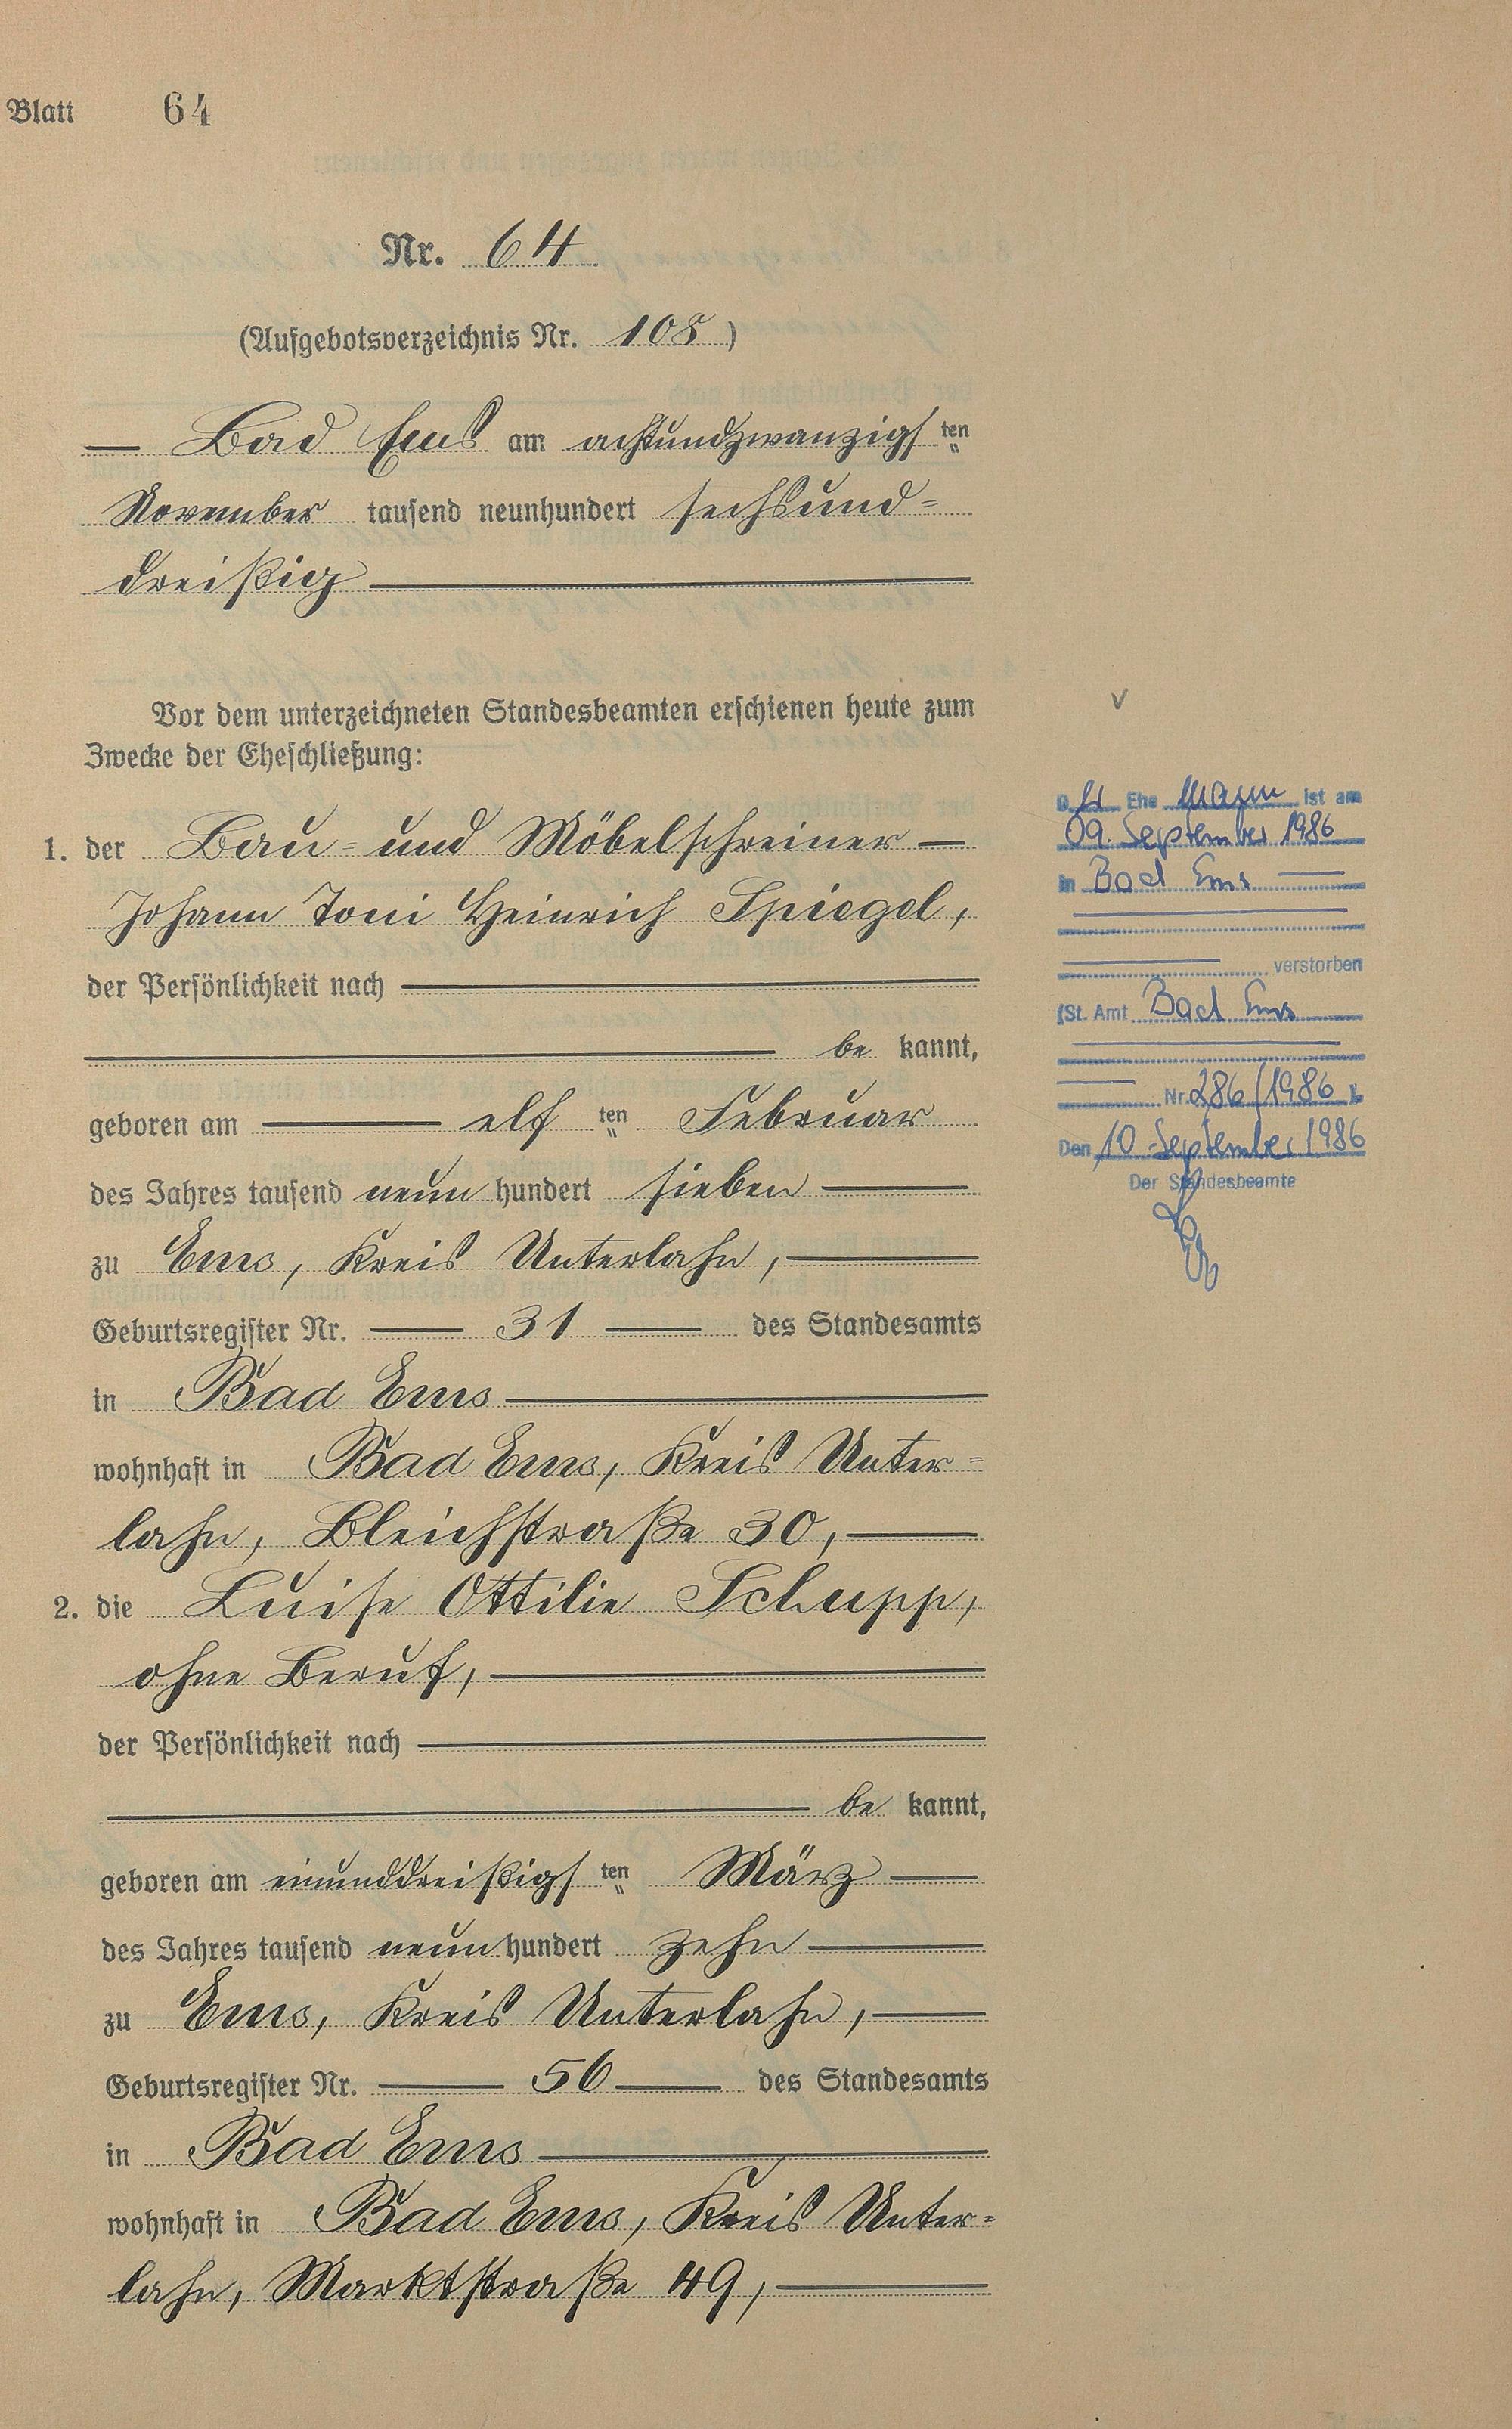 Blatt 64
Nr. 64
(Aufgebotsverzeichnis Nr. 108)
— Bad Ems am achtundzwanzigsten
November tausend neunhundert sechsund=
dreißig
Vor dem unterzeichneten Standesbeamten erschienen heute zum
Zwecke der Eheschließung:
1. der Bau= und Möbelschreiner —
Johann Toni Heinrich Spiegel,
der Persönlichkeit nach
be kannt,
geboren am elf ten Februar
des Jahres tausend neun hundert sieben
zu Ems, Kreis Unterlahn,
Geburtsregister Nr. 31 des Standesamts
in Bad Ems
wohnhaft in Bad Ems, Kreis Unter=
lahn, Bleichstraße 30,
2. die Luise Ottilie Schupp,
ohne Beruf,
der Persönlichkeit nach
be kannt,
geboren am einunddreißigsten März
des Jahres tausend neun hundert zehn
zu Ems, Kreis Unterlahn,
Geburtsregister Nr. 56 des Standesamts
in Bad Ems
wohnhaft in Bad Ems, Kreis Unter=
lahn, Marktstraße 49,
Der Ehe Mann ist am
09. September 1986
in Bad Ems
verstorben
(St. Amt Bad Ems
Nr. 286/1986
Den 10. September 1986
Der Standesbeamte